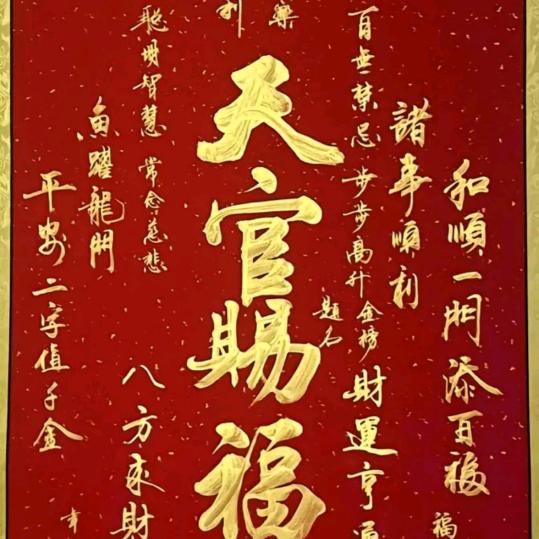 和順一門添百福
福
諸事順利
百無禁忌
步步高升
金榜
題名
財運亨通
樂
天官賜福
利
聰明智慧
常念慈悲
八方來財
魚躍龍門
平安二字值千金